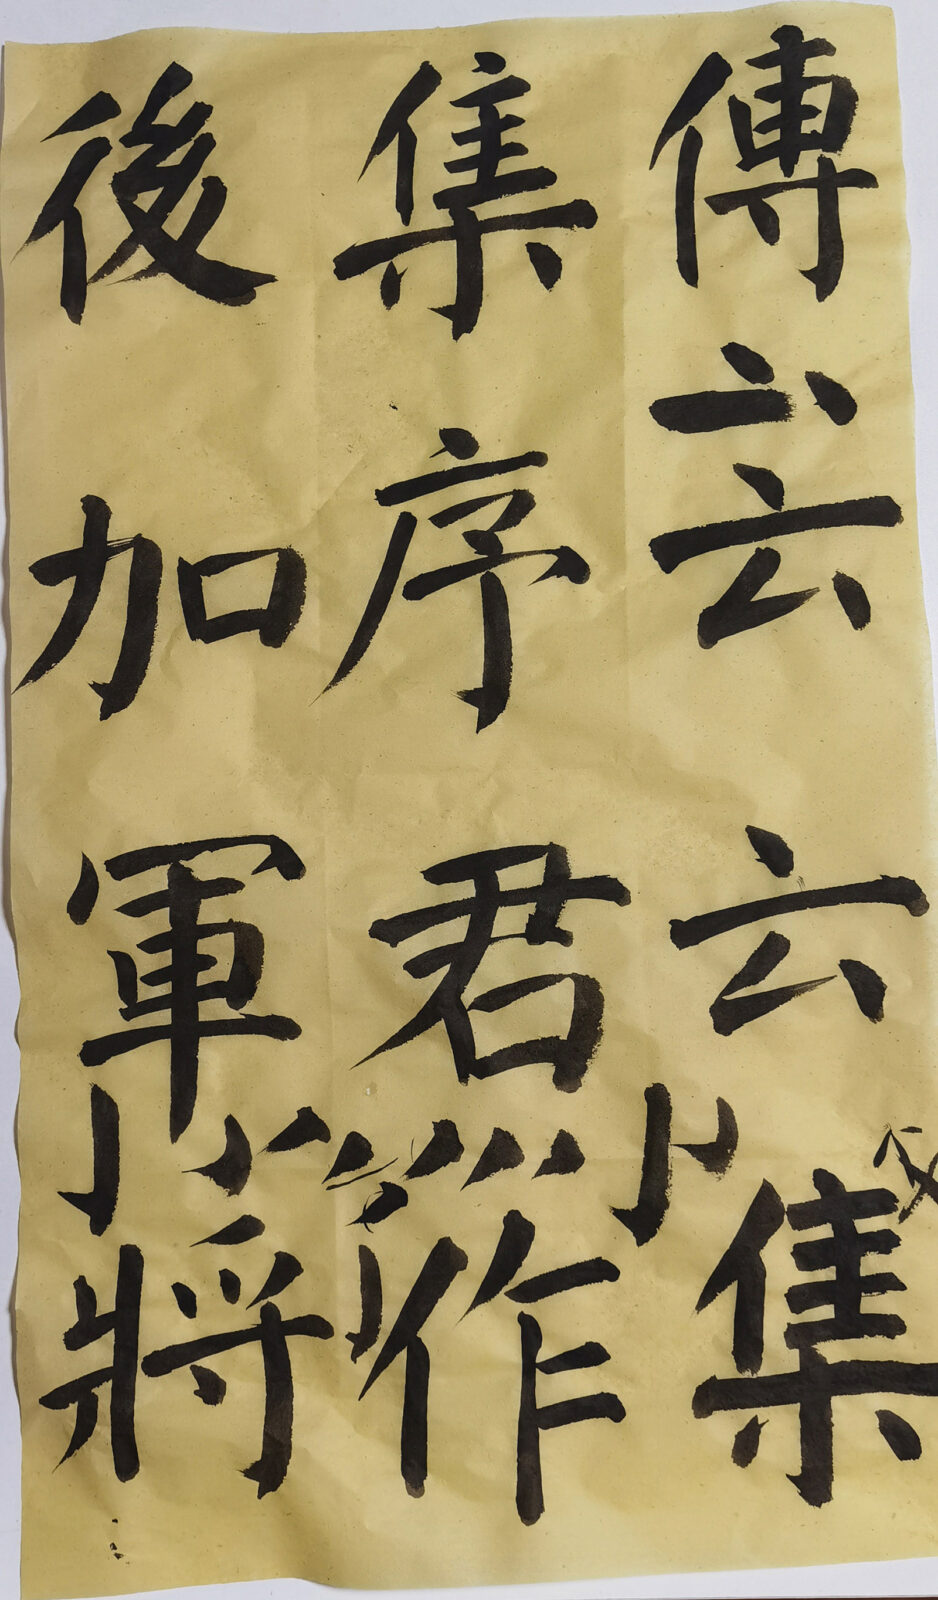 傳云云集
集序君作
後加軍將